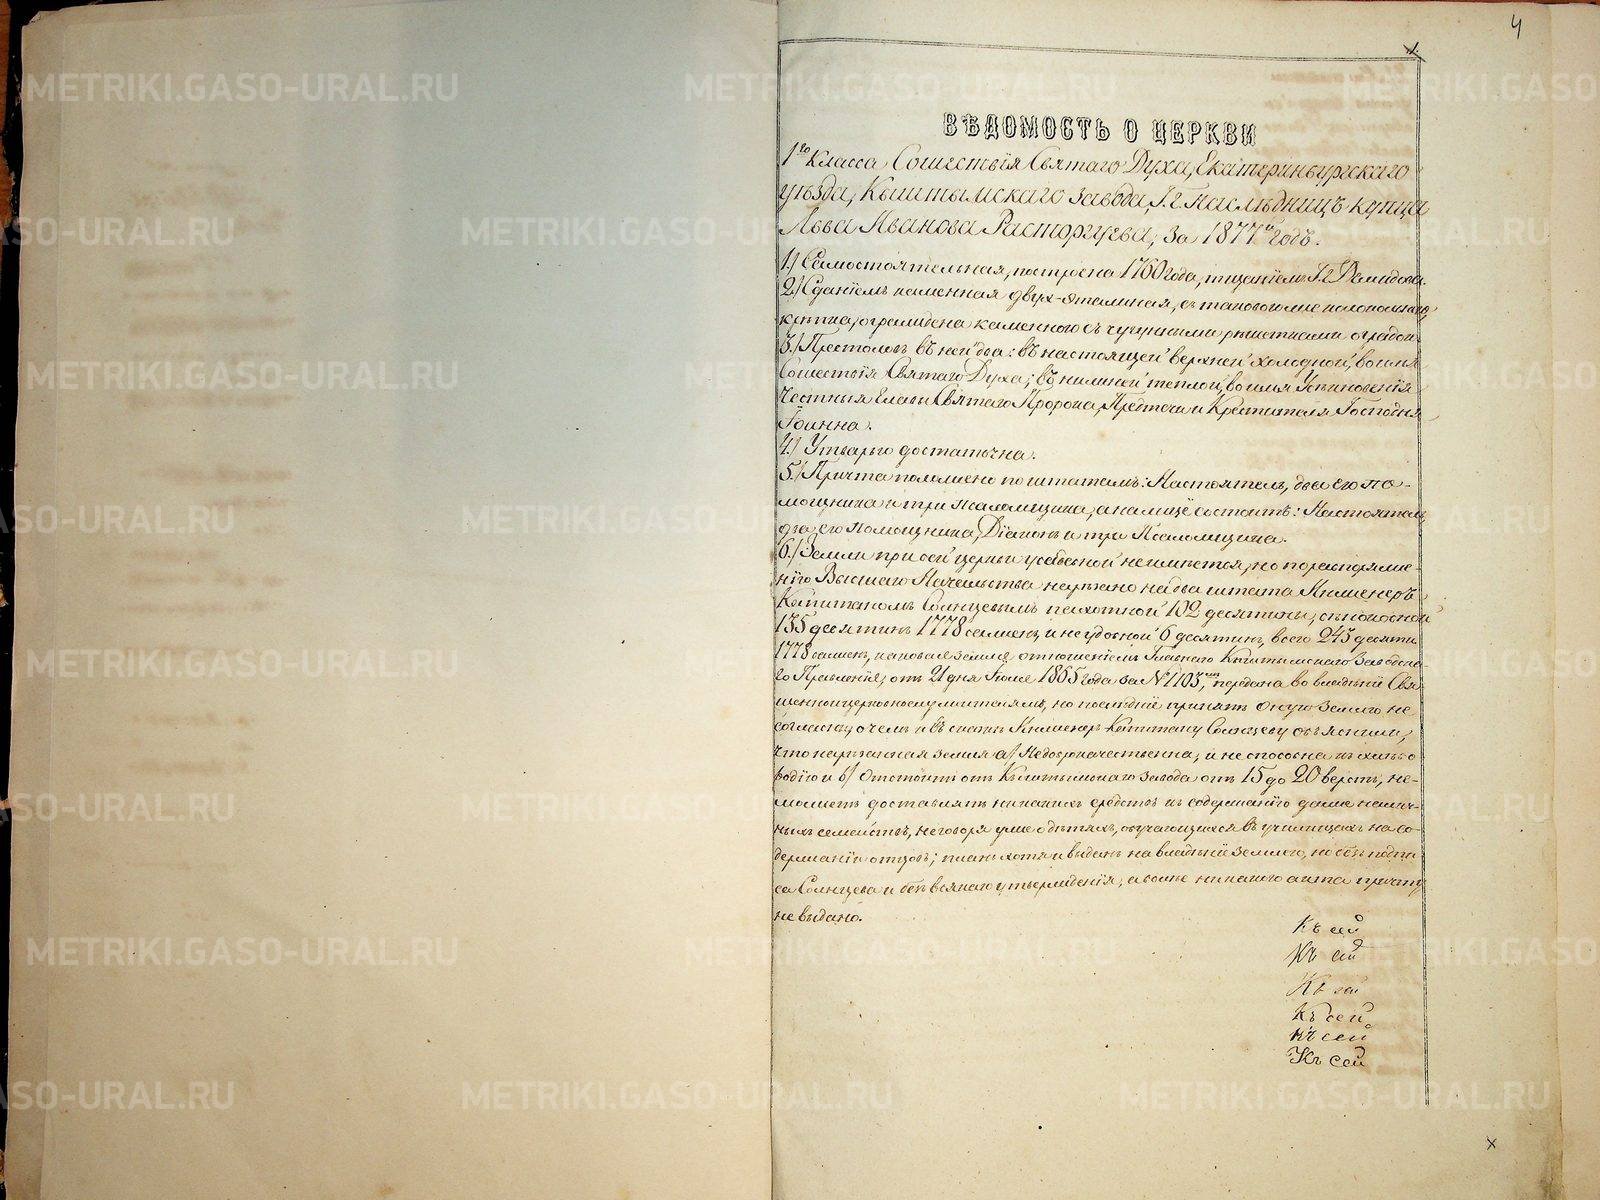 4
1.
ВѢДОМОСТЬ О ЦЕРКВИ
1го Класса, Сошествія Святаго Духа, Екатеринбургскаго
уѣзда, Кыштымскаго завода, Г.г. Наслѣдницъ купца
Льва Иванова Расторгуева, за 1877й годъ.
1.) Самостоятельная, построена 1760 года, тщаніемъ Г. Демидова.
2.) Зданіемъ каменная двух-этажная, съ таковою же колокольнею,
крѣпка, ограждена каменною съ чугунными рѣшетками оградою.
3.) Престоловъ въ ней два: въ настоящей верхней холодной, во имя
Сошествія Святаго Духа; въ нижней теплой, во имя Усѣкновенія
Честныя Главы Святаго Пророка, Предтечи и Крестителя Господня
Іоанна.
4.) Утварью достаточна.
5.) Причта положено по штатамъ: Настоятель, два его по-
мощника и три псаломщика, а на лицѣ состоитъ: Настоятель,
два его помощника, Діаконъ и три Псаломщика.
6.) Земли при сей церкви усадебной не имѣется, но по распоряже-
нію Высшаго Начальства нарѣзано на два штата Инженеръ
Капитаномъ Солнцевымъ пахотной 102 десятины, сѣнокосной
135 десятинъ 1778 сажен. и неудобной 6 десятинъ, всего 243 десят.
1778 сажен., каковая земля отношеніемъ Главнаго Кыштымскаго Заводска-
го Правленія, отъ 21 дня Іюля 1865 года за № 1103, передана во владѣніе Свя-
щенноцерковнослужителямъ, но послѣдніе принять оную землю не
согласны, о чемъ и въ сказкѣ Инженеръ Капитану Солнцеву объяснили,
что нарѣзанная земля а) Недоброкачественна, и не способна къ хлѣбо
родію и б) Отстоитъ отъ Кыштымскаго Завода отъ 15 до 20 верстъ, не-
можетъ доставлять никакихъ средствъ къ содержанію даже налич-
ныхъ семействъ, не говоря уже о дѣтяхъ, обучающихся въ училищахъ на со-
держаніи отцовъ; планъ хотя и выданъ на владѣніе землею, но безъ подпи-
са Солнцева и безъ всякаго утвержденія, а болѣе никакого акта причту
не выдано.
Къ сей
Къ сей
Къ сей
Къ сей
Къ сей
Къ сей